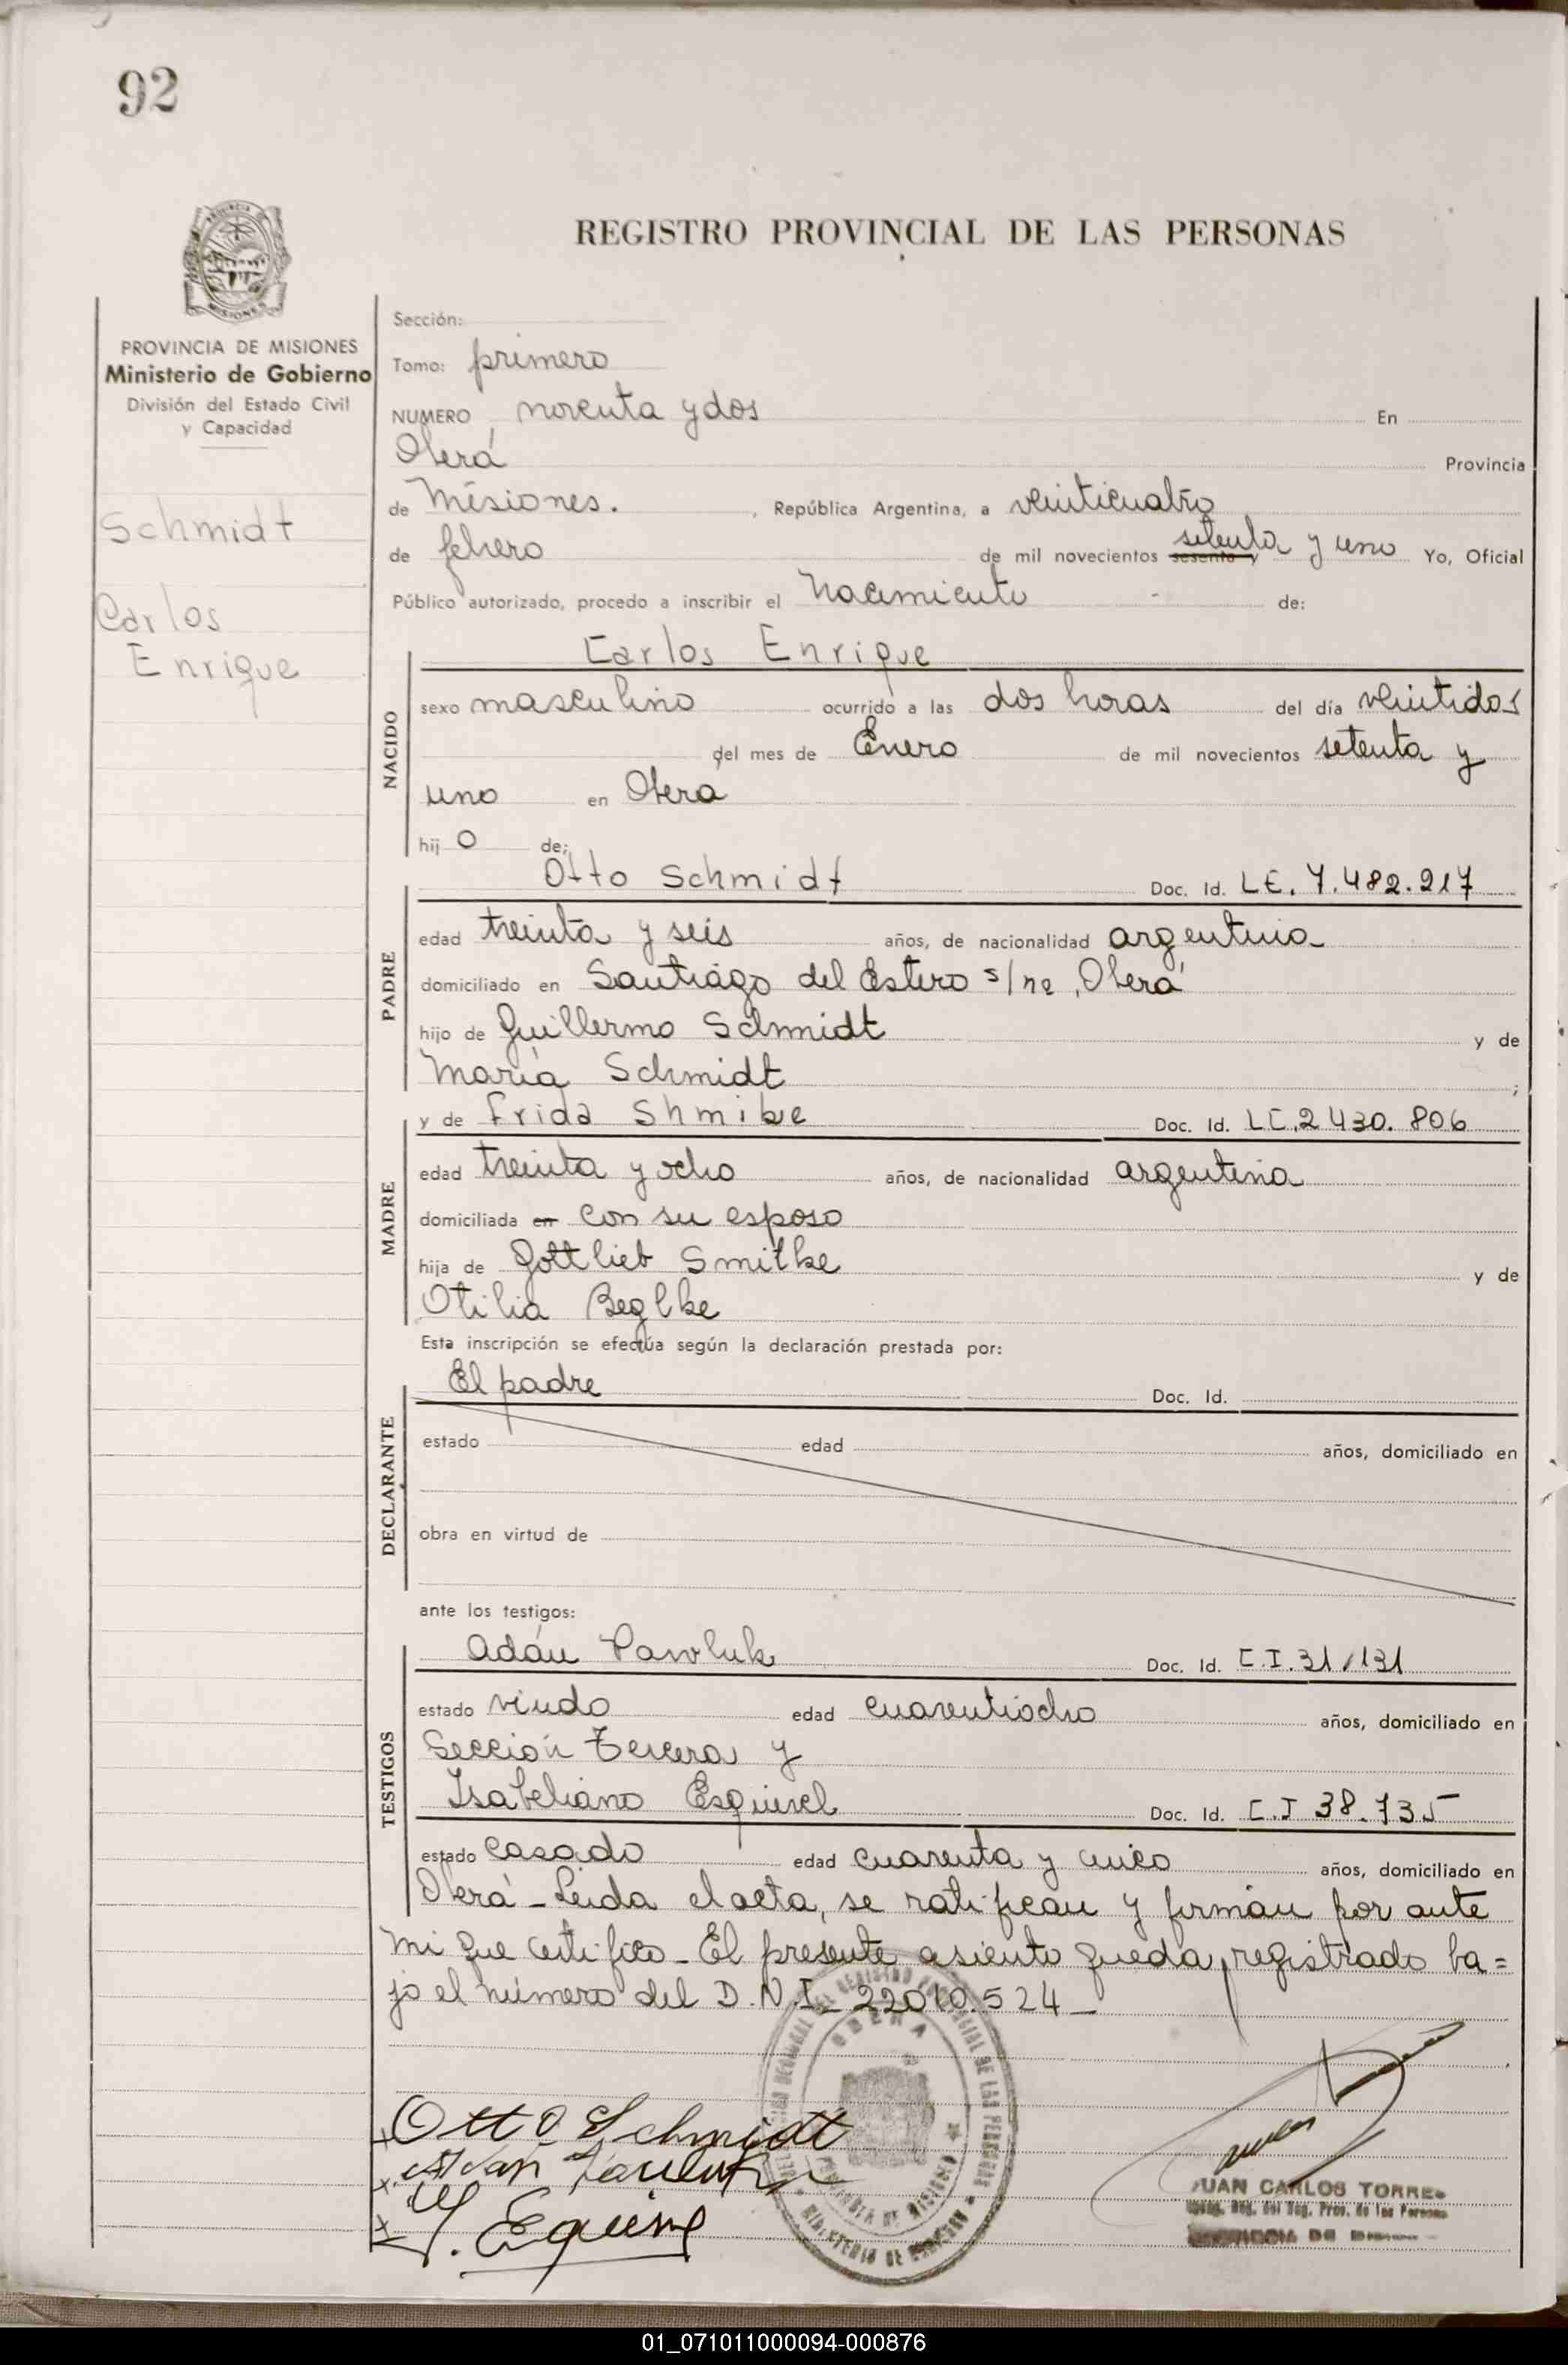 92
REGISTRO PROVINCIAL DE LAS PERSONAS
PROVINCIA DE MISIONES
Ministerio de Gobierno
División del Estado Civil
y Capacidad
Schmidt
Carlos
Enrique
Sección:
Tomo: primero
NUMERO noventa y dos En
Oberá Provincia
de Misiones. , República Argentina, a veinticuatro
de febrero de mil novecientos sesenta y setenta y uno Yo, Oficial
Público autorizado, procedo a inscribir el Nacimiento - de:
Carlos Enrique
NACIDO
sexo masculino ocurrido a las dos horas del día veintidos
del mes de Enero de mil novecientos setenta y
uno en Oberá
hij o de:
Otto Schmidt Doc. Id. L.E. 7.482.217
PADRE
edad treinta y seis años, de nacionalidad argentina
domiciliado en Santiago del Estero s/nº, Oberá
hijo de Guillermo Schmidt y de
María Schmidt ;
y de Frida Shmibe Doc. Id. L.C. 2430.806
MADRE
edad treinta y ocho años, de nacionalidad argentina
domiciliada en con su esposo
hija de Gottlieb Smilke y de
Otilia Beglke
Esta inscripción se efectúa según la declaración prestada por:
El padre Doc. Id.
DECLARANTE
estado edad años, domiciliado en
obra en virtud de
ante los testigos:
Adán Pawluk Doc. Id. C.I. 31/131
TESTIGOS
estado viudo edad cuarentiocho años, domiciliado en
Sección Tercera y
Isabeliano Esquivel Doc. Id. C.I 38.735
estado casado edad cuarenta y cinco años, domiciliado en
Oberá - Leida el acta, se ratifican y firman por ante
mi que certifico - El presente asiento queda registrado ba=
jo el número del D.N.I - 22010.524 -
Otto Schmidt
JUAN CARLOS TORRES
01_071011000094-000876